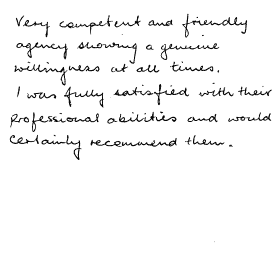 Very competent and friendly
agency showing a genuine
willingness at all times.
I was fully satisfied with their
professional abilities and would
certainly recommend them.